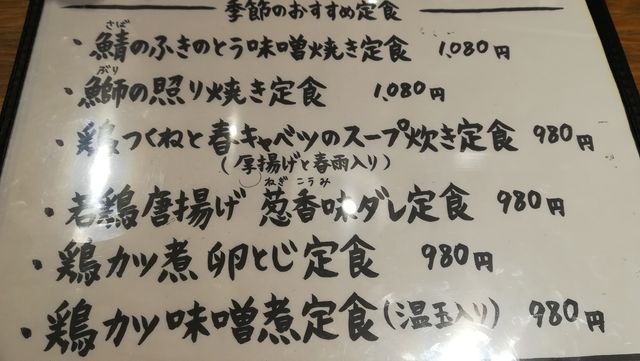 季節のおすすめ定食
さば
・鯖のふきのとう味噌焼き定食 1,080円
ぶり
・鰤の照り焼き定食 1,080円
・鶏つくねと春キャベツのスープ炊き定食 980円
(厚揚げと春雨入り)
ねぎ こうみ
・若鶏唐揚げ 葱香味ダレ定食 980円
・鶏カツ煮 卵とじ定食 980円
・鶏カツ味噌煮定食(温玉入り) 980円